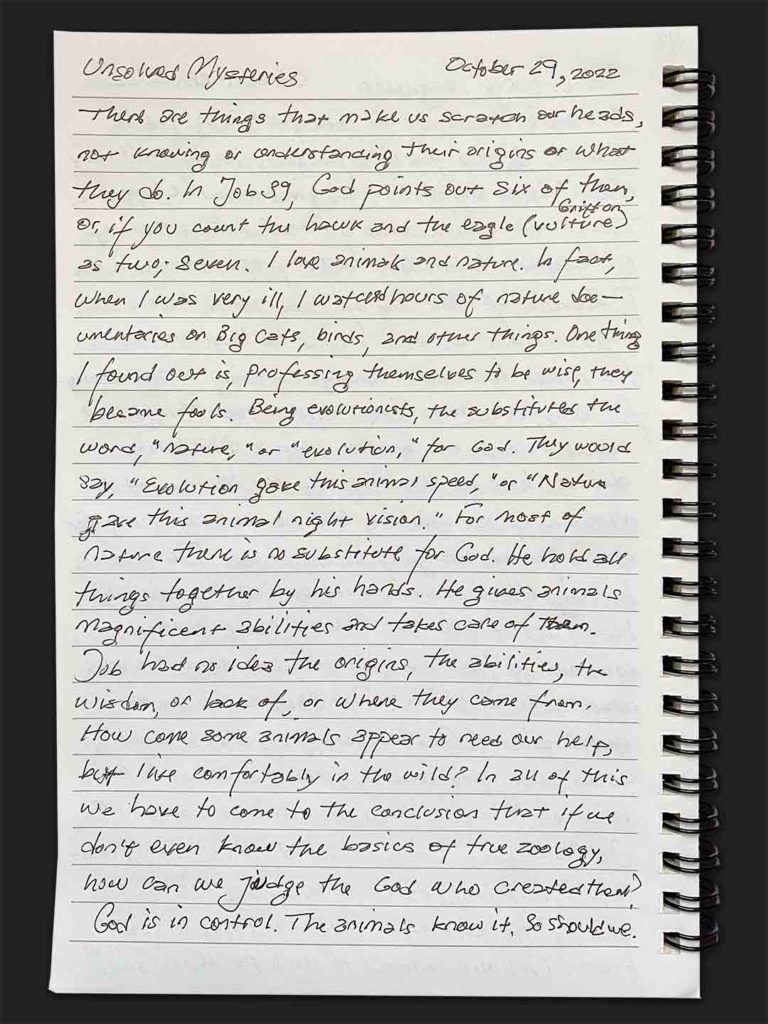 Unsolved Mysteries October 29, 2022
There are things that make us scratch our heads,
not knowing or understanding their origins or what
they do. In Job 39, God points out six of them,
Griffon
or, if you count the hawk and the eagle (vulture)
as two; seven. I love animals and nature. In fact,
when I was very ill, I watched hours of nature doc-
umentaries on Big Cats, birds, and other things. One thing
I found out is, professing themselves to be wise, they
became fools. Being evolutionists, the substituted the
word, "nature," or "evolution," for God. They would
say, "Evolution gave this animal speed," or "Nature
gave this animal night vision." For most of
nature there is no substitute for God. He hold all
things together by his hands. He gives animals
magnificent abilities and takes care of them.
Job had no idea the origins, the abilities, the
wisdom, or lack of, or where they came from.
How come some animals appear to need our help,
but live comfortably in the wild? In all of this
we have to come to the conclusion that if we
don't even know the basics of true zoology,
how can we judge the God who created them?
God is in control. The animals know it. So should we.